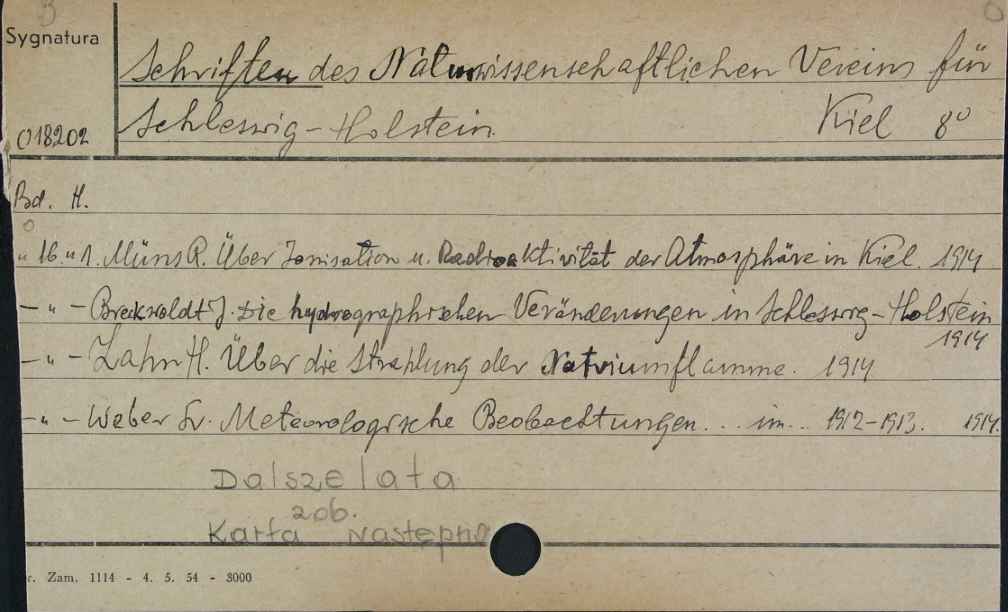 Sygnatura
Schriften des Naturwissenschaftlichen Vereins für
Schleswig-Holstein. Kiel 8°
018202
Bd. H.
" 16. " 1. Müns R. Über Ionisation u. Radioaktivität der Atmosphäre in Kiel. 1914
— " — Breckwoldt J. Die hydrographischen Veränderungen in Schleswig-Holstein
1914
— " — Zahn H. Über die Strahlung der Natriumflamme. 1914
— " — Weber Lr. Meteorologische Beobachtungen... im.. 1912-1913. 1914.
Dalsze lata
zob.
Karta następna
r. Zam. 1114 - 4. 5. 54 - 3000